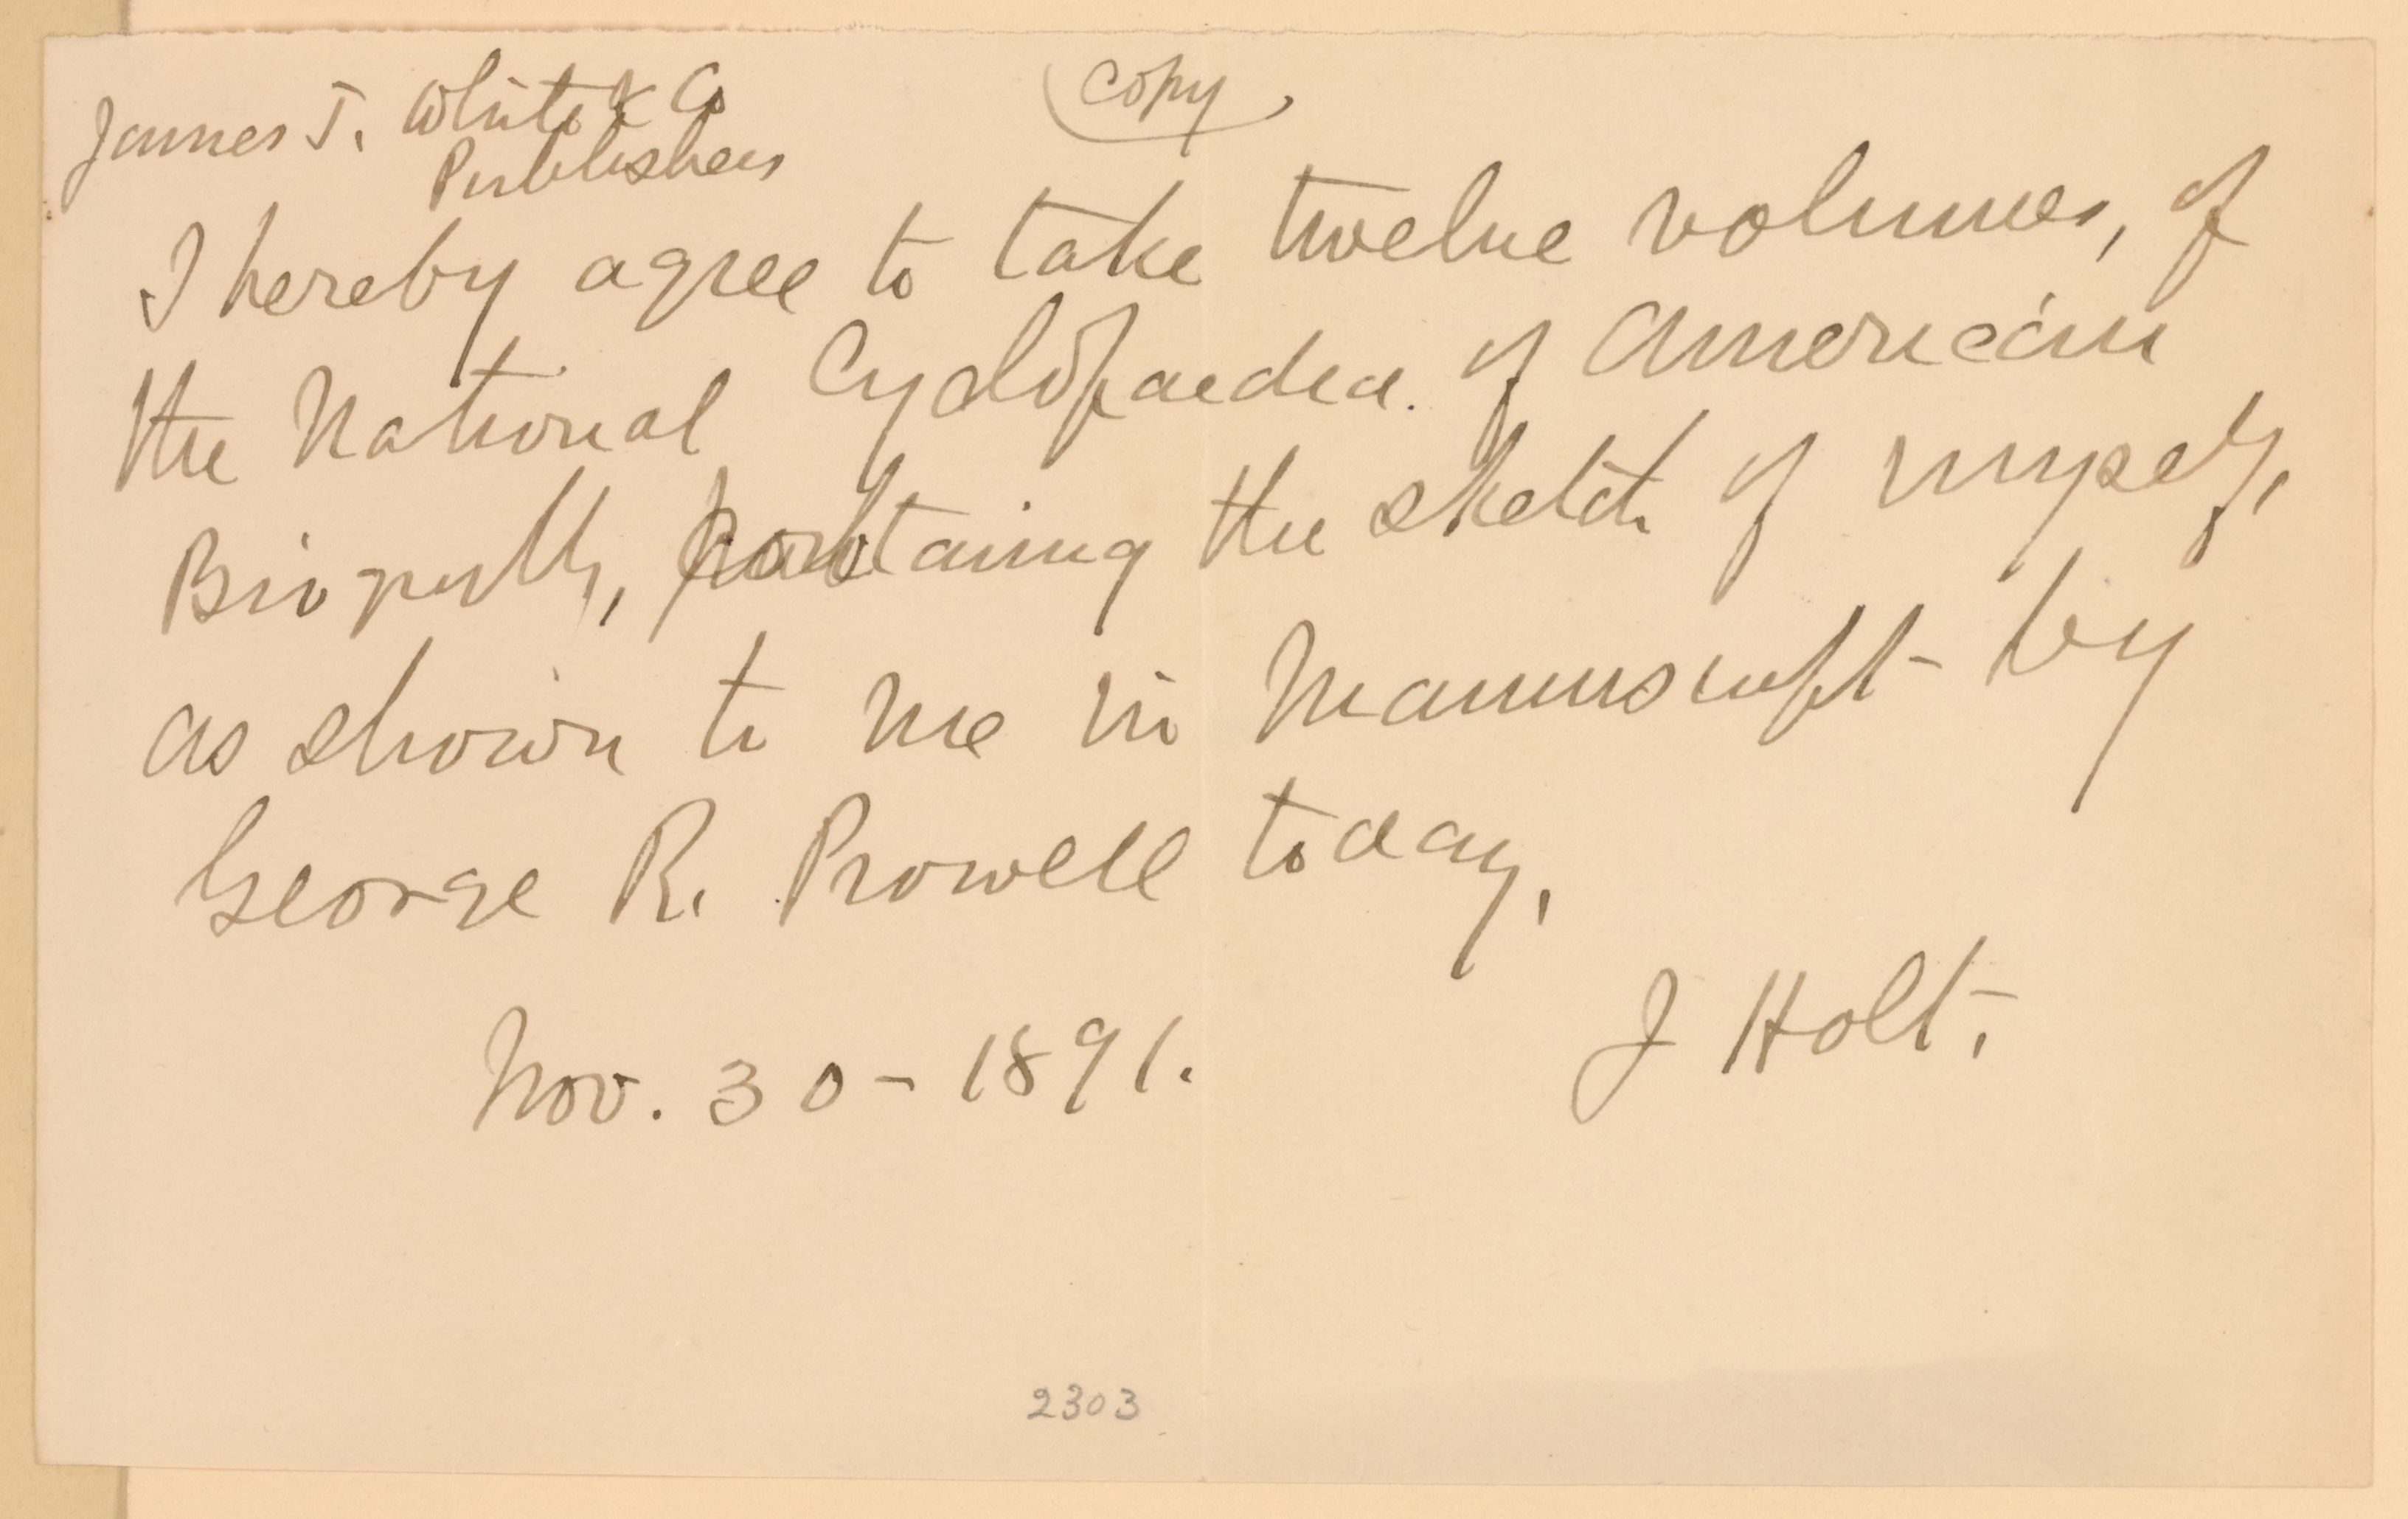 James T. White & Co
Copy
Publishers
I hereby agree to take twelve volumes, of
the National Cyclopaedia. of American
Biography, containing the sketch of myself,
as shown to me in manuscript by
George R. Prowell today,
J Holt.
Nov. 30 - 1891.
2303